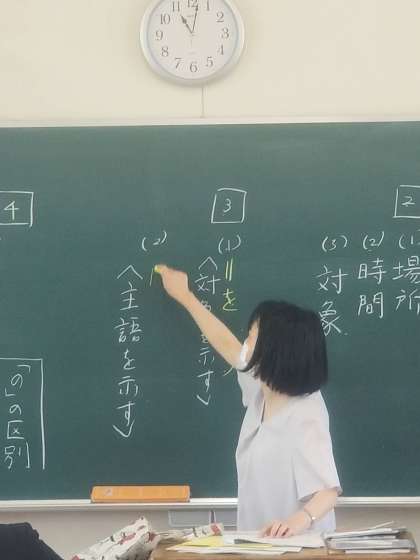 2
(1)
場所
(2)
時間
(3)
対象
3
(1)
=を
〈対象を示す〉
(2)
〈主語を示す〉
4
「の」の区別
12
1
2
3
4
5
6
7
8
9
10
11